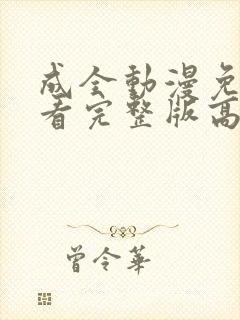 成全動漫免
看完整版高
曾令華